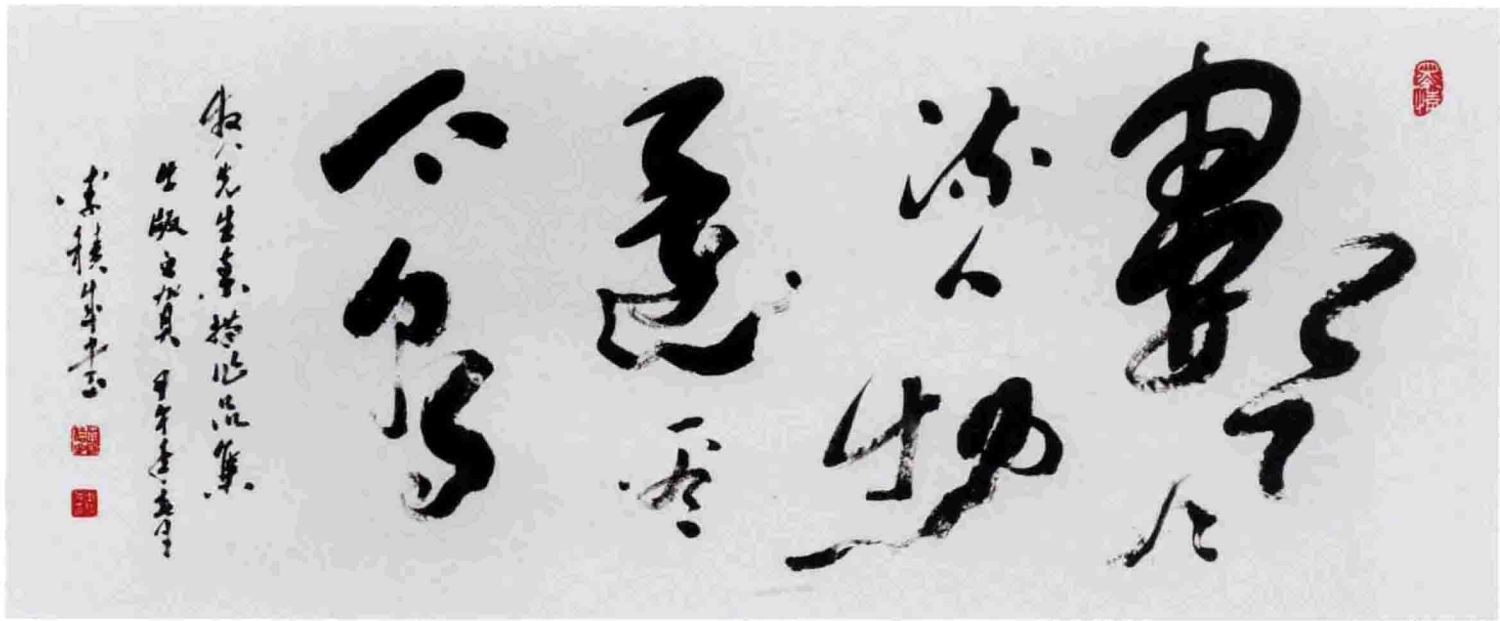 數風
流人物
還看
今朝
先生素描作品集
出版 賀 甲午
積成書